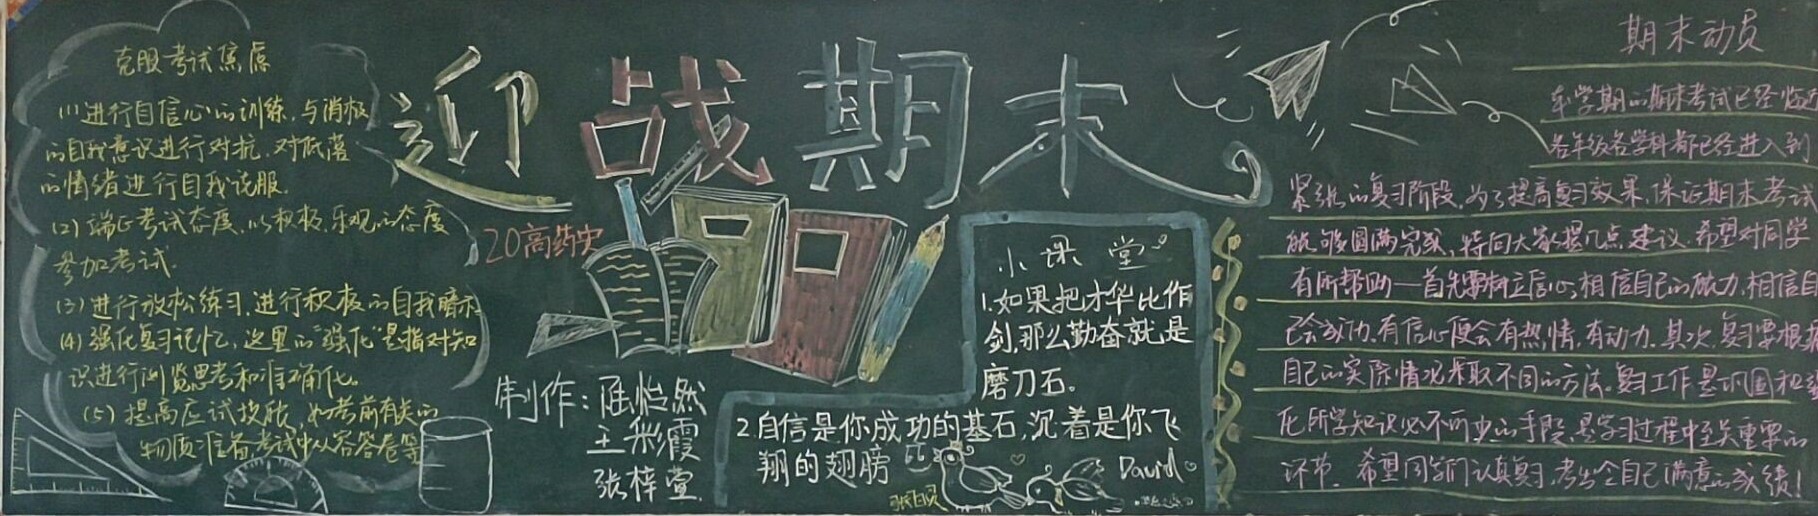 克服考试焦虑
(1)进行自信心的训练，与消极
的自我意识进行对抗，对低落
的情绪进行自我说服。
(2)端正考试态度，以积极，乐观的态度
参加考试。
(3)进行放松练习，进行积极的自我暗示
(4)强化复习记忆，这里的“强化”是指对知
识进行浏览思考和准确化。
(5)提高应试技能，如考前有关的
物质准备，考试中从容答卷等
迎战期末
20高药史
制作：陆怡然
王彩霞
张梓萱
小课堂
1.如果把才华比作
剑，那么勤奋就是
磨刀石。
2.自信是你成功的基石，沉着是你飞
翔的翅膀
David
期末动员
本学期的期末考试已经临近
各年级各学科都已经进入到
紧张的复习阶段，为了提高复习效果，保证期末考试
能够圆满完成，特向大家提几点建议，希望对同学
有所帮助—首先要树立信心，相信自己的能力，相信自
己会成功，有信心便会有热情，有动力。其次，复习要根据
自己的实际情况采取不同的方法。复习工作是巩固和强
化所学知识必不可少的手段，是学习过程中至关重要的
环节。希望同学们认真复习，考出令自己满意的成绩！